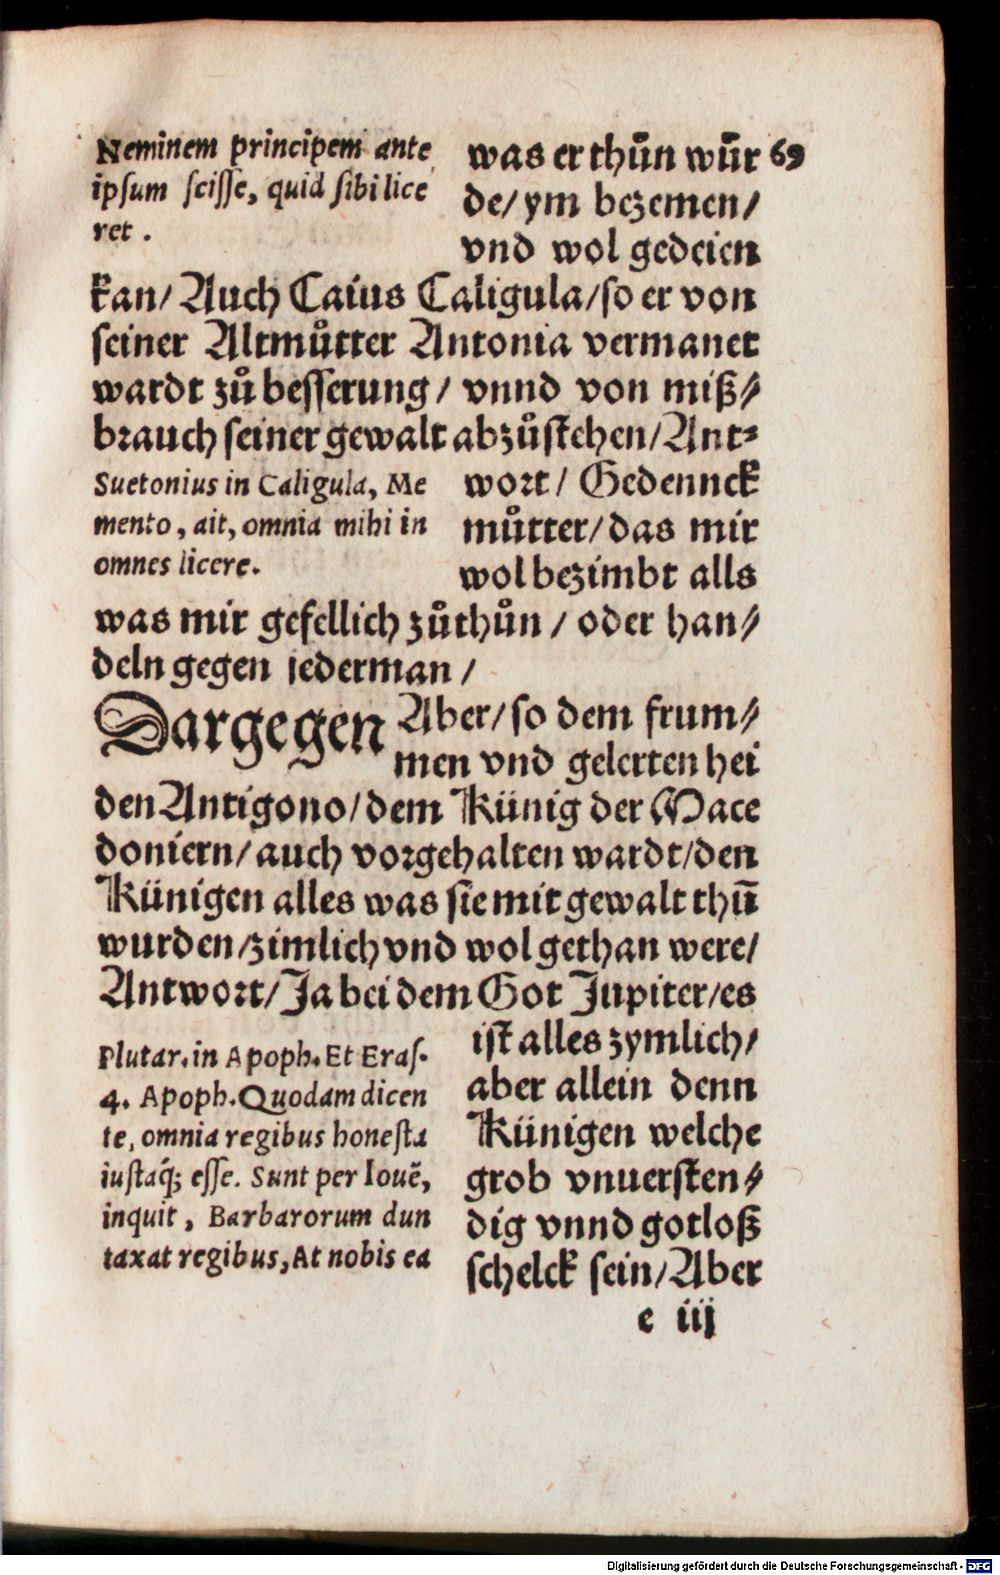 Neminem principem ante
ipsum scisse, quid sibi lice
ret .
was er thůn wür 69
de/ ym bezemen/
vnd wol gedeien
kan/ Auch Caius Caligula/ so er von
seiner Altmůtter Antonia vermanet
wardt zů besserung/ vnnd von miß⸗
brauch seiner gewalt abzůstehen/ Ant⸗
Suetonius in Caligula, Me
mento, ait, omnia mihi in
omnes licere.
wort/ Gedennck
můtter/ das mir
wol bezimbt alls
was mir gefellich zůthůn/ oder han⸗
deln gegen iederman/
Dargegen Aber/ so dem frum⸗
men vnd gelerten hei
den Antigono/ dem Künig der Mace
doniern/ auch vorgehalten wardt/ den
Künigen alles was sie mit gewalt thū
wurden/ zimlich vnd wol gethan were/
Antwort/ Ja bei dem Got Jupiter/ es
Plutar. in Apoph. Et Eras.
4. Apoph. Quodam dicen
te, omnia regibus honesta
iustaq́; esse. Sunt per Iouē,
inquit, Barbarorum dun
taxat regibus, At nobis ea
ist alles zymlich/
aber allein denn
Künigen welche
grob vnuersten⸗
dig vnnd gotloß
schelck sein/ Aber
e iij
Digitalisierung gefördert durch die Deutsche Forschungsgemeinschaft - DFG